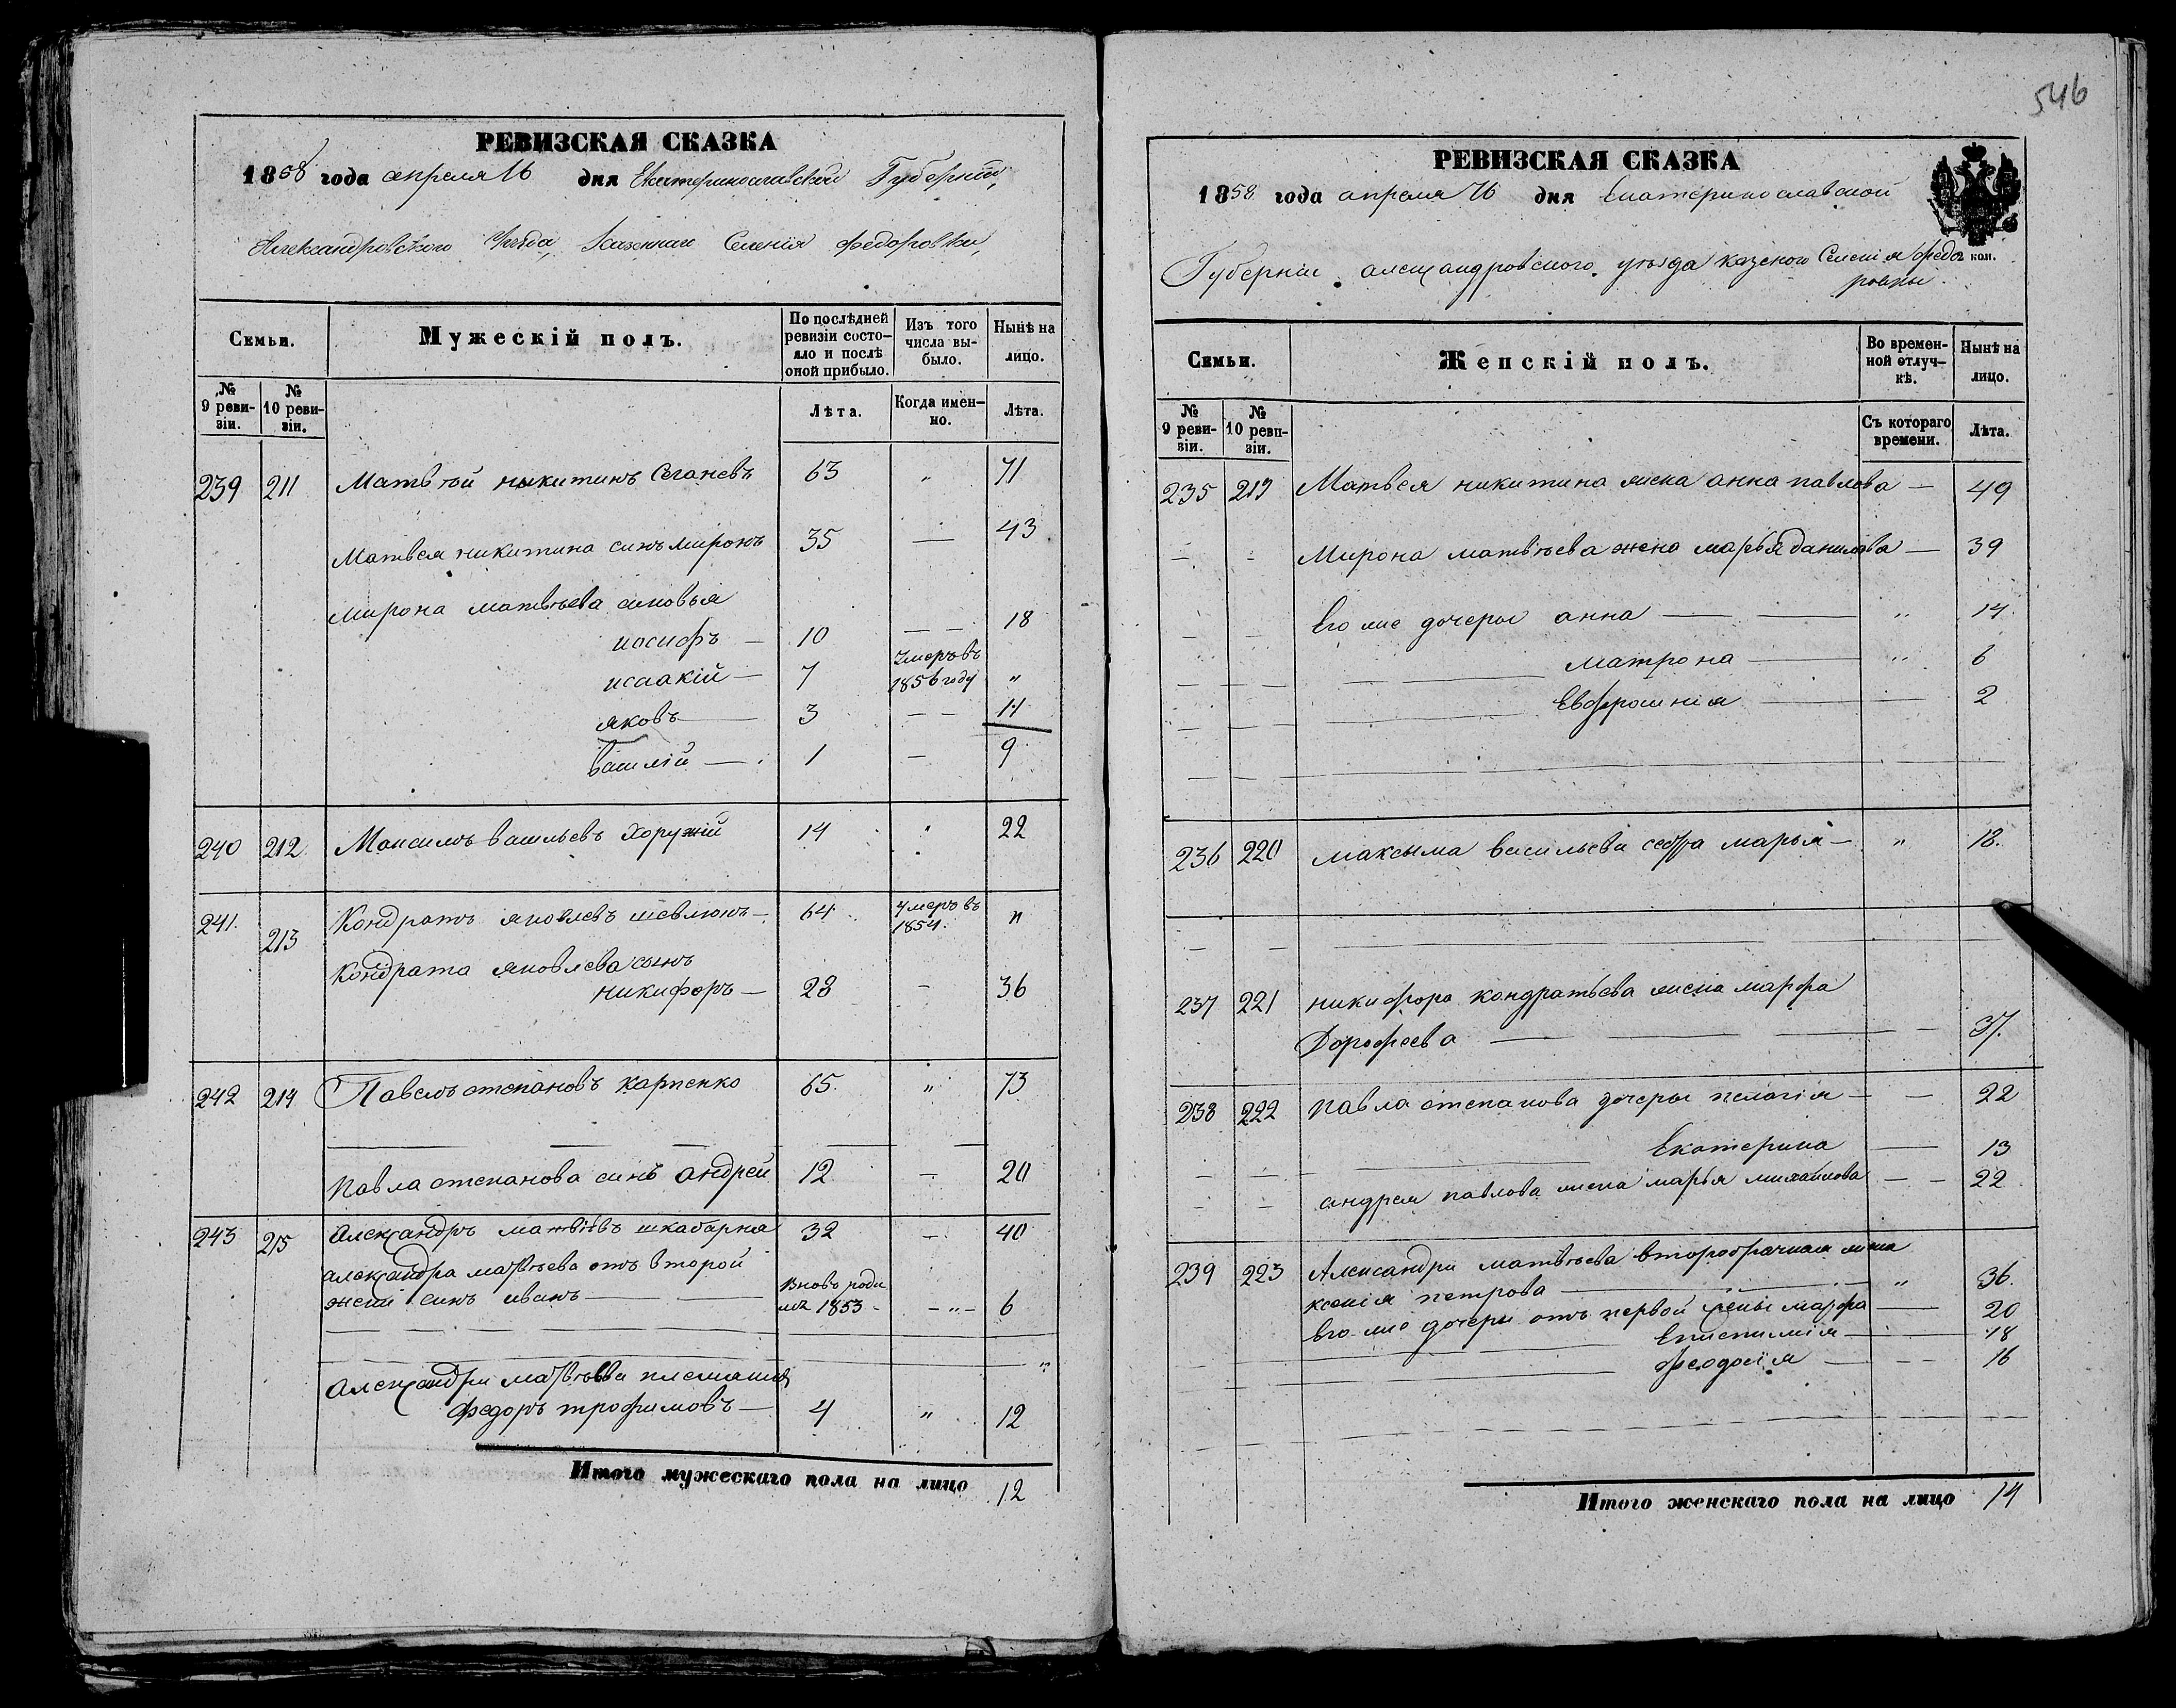 РЕВИЗСКАЯ СКАЗКА
1858 года апреля 16 дня Екатеринославской Губернiи,
Александровского Уѣзда, Казеннаг Селенiя Федоровки,
Семьи.
Мужескiй полъ.
По послѣдней ревизiи состо-яло и послѣ оной прибыло.
Изъ того числа вы-было.
Нынѣ на лицо.
№ 9 реви-зiи.
№ 10 реви-зiи.
Лѣта.
Когда имен-но.
Лѣта.
239 211 Матвѣй никитинъ 63 „ 71
Матвея никитина синъ миронъ 35 — 43
мирона матвѣева сыновья
иосифъ — 10 — — 18
исаакiй — 7 Умеръ въ 1856 году „
яковъ — 3 — — 11
Василiй — 1 — 9
240 212 Максимъ васильевъ Хоружiй 14 „ 22
241. 213 Кондратъ яковлевъ шевлюкъ — 64 умеръ въ 1854. „
Кондрата яковлева сынъ
никифоръ — 28 — 36
242 214 Павелъ степановъ карпенко 65. „ 73
Павла степанова синъ андрей 12 — 20
243 215 Александръ матвѣевъ шкабарня 32 — 40
александра матвѣева отъ второй
жени синъ иванъ — Вновь роди лся 1853 — „ — 6
Александра матвѣева племяник „
федоръ трофимовъ — 4 „ 12
Итого мужескаго пола на лицо 12
546
РЕВИЗСКАЯ СКАЗКА
1858 года апреля 16 дня Екатеринославской
Губернiи александровского уѣзда казеного Селенiя Федо
ровки
коп.
Семьи.
Женскiй полъ.
Во времен-ной отлуч-кѣ.
Нынѣ на лицо.
№ 9 реви-зiи.
№ 10 реви-зiи.
Съ котораго времени.
Лѣта.
235 219 Матвея никитина жена анна павлова — 49
Мирона матвѣева жена марья данилова — 39
Его же дочеры анна — „ 14.
матрона — „ 6
Евфросинiя — 2
236 220 максыма васильева сестра марья — „ 18.
237 221 никифора кондратьева жена марфа
Дорофеева — 37.
238 222 павла степанова дочеры пелагiя — — 22
Екатерина — 13
андрея павлова жена марья михайлова — — 22
239 223 Александра матвѣева второбрачная жена
ксенiя петрова — „ 36.
его же дочеры отъ первой жены марфа — 20
Епистимiя — 18
феодосiя — — 16
Итого женскаго пола на лицо 14